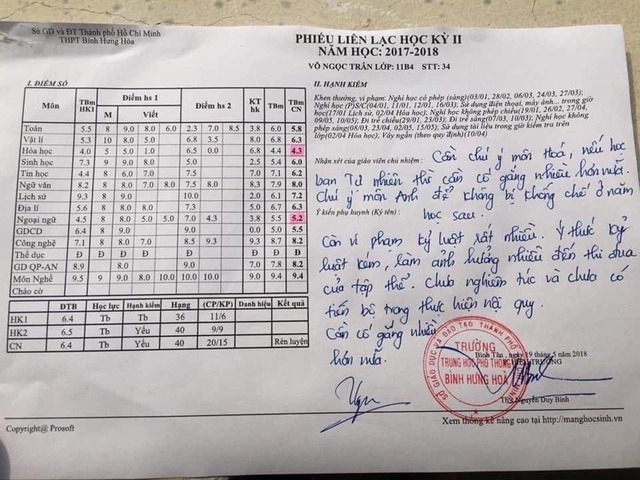 Sở GD và ĐT Thành phố Hồ Chí Minh
THPT Bình Hưng Hòa
PHIẾU LIÊN LẠC HỌC KỲ II
NĂM HỌC: 2017-2018
VÕ NGỌC TRÂN LỚP: 11B4 STT: 34
I. ĐIỂM SỐ
Môn TBm HK1 Điểm hs 1 Điểm hs 2 KT hk TBm HK2 TBm CN
M Viết
Toán 5.5 8 9.0 8.0 6.0 2.3 7.0 8.5 3.8 6.0 5.8
Vật lí 5.3 10 8.0 5.0 6.8 3.5 6.8 6.3
Hóa học 4.0 5 5.0 1.0 6.5 0.0 6.8 4.4 4.3
Sinh học 7.3 9 9.0 8.0 9.0 2.5 5.4 6.0
Tin học 4.4 8 6.0 8.0 6.0 7.5 7.1 6.2
Ngữ văn 8.2 8 8.0 7.0 8.0 7.5 8.0 8.3 7.9 8.0
Lịch sử 9.3 8 9.0 10.0 2.0 6.1 7.2
Địa lí 5.6 8 8.0 8.0 7.3 5.0 6.7 6.3
Ngoại ngữ 4.5 8 8.0 5.0 5.0 7.0 4.3 3.8 5.5 5.2
GDCD 6.4 8 9.0 9.0 0.0 5.0 5.5
Công nghệ 7.1 8 8.0 7.0 8.5 9.3 9.3 8.7 8.2
Thể dục Đ Đ Đ Đ Đ Đ Đ
GD QP-AN 8.9 8.0 9.0 7.0 7.8 8.2
Môn Nghề 9.5 9 9.0 8.0 10.0 10.0 10.0 9.0 9.4 9.4
Chào cờ
ĐTB Học lực Hạnh kiểm Hạng (CP/KP) Danh hiệu Kết quả
HK1 6.4 Tb Tb 36 11/6
HK2 6.5 Tb Yếu 40 9/9
CN 6.4 Tb Yếu 40 20/15 Rèn luyện
II. HẠNH KIỂM
Khen thưởng, vi phạm: Nghỉ học có phép (sáng)(03/01, 28/02, 06/03, 24/03, 27/03);
Nghỉ học (P)/S/C(04/01, 11/01, 12/01, 16/03); Sử dụng điện thoại, máy ảnh... trong giờ
học(17/01 Lịch sử, 02/04 Hóa học); Nghỉ học không phép chiều(19/01, 26/02, 27/04,
09/05, 10/05); Đi trễ chiều(29/01, 23/03); Đi trễ sáng(07/03, 10/03); Nghỉ học không
phép sáng(08/03, 23/04, 02/05, 15/05); Sử dụng tài liệu trong giờ kiểm tra trên
lớp(02/04 Hóa học); Váy ngắn (theo quy định)(10/04)
Nhận xét của giáo viên chủ nhiệm: Cần chú ý môn Hoá, nếu học
ban Tự nhiên thì cần cố gắng nhiều hơn nữa.
Chú ý môn Anh để không bị khống chế ở năm
học sau.
Ý kiến phụ huynh (Ký tên):
Còn vi phạm kỷ luật rất nhiều. Ý thức kỷ
luật kém, làm ảnh hưởng nhiều đến thi đua
của tập thể. Chưa nghiêm túc và chưa có
tiến bộ trong thực hiện nội quy.
Cần cố gắng nhiều
hơn nữa.
Bình Tân, ngày 19 tháng 5 năm 2018
HIỆU TRƯỞNG
SỞ GIÁO DỤC VÀ ĐÀO TẠO THÀNH PHỐ
TRƯỜNG
TRUNG HỌC PHỔ THÔNG
BÌNH HƯNG HÒA
ThS Nguyễn Duy Bình
Copyright@ Prosoft
Xem thống kê nâng cao tại http://manghocsinh.vn